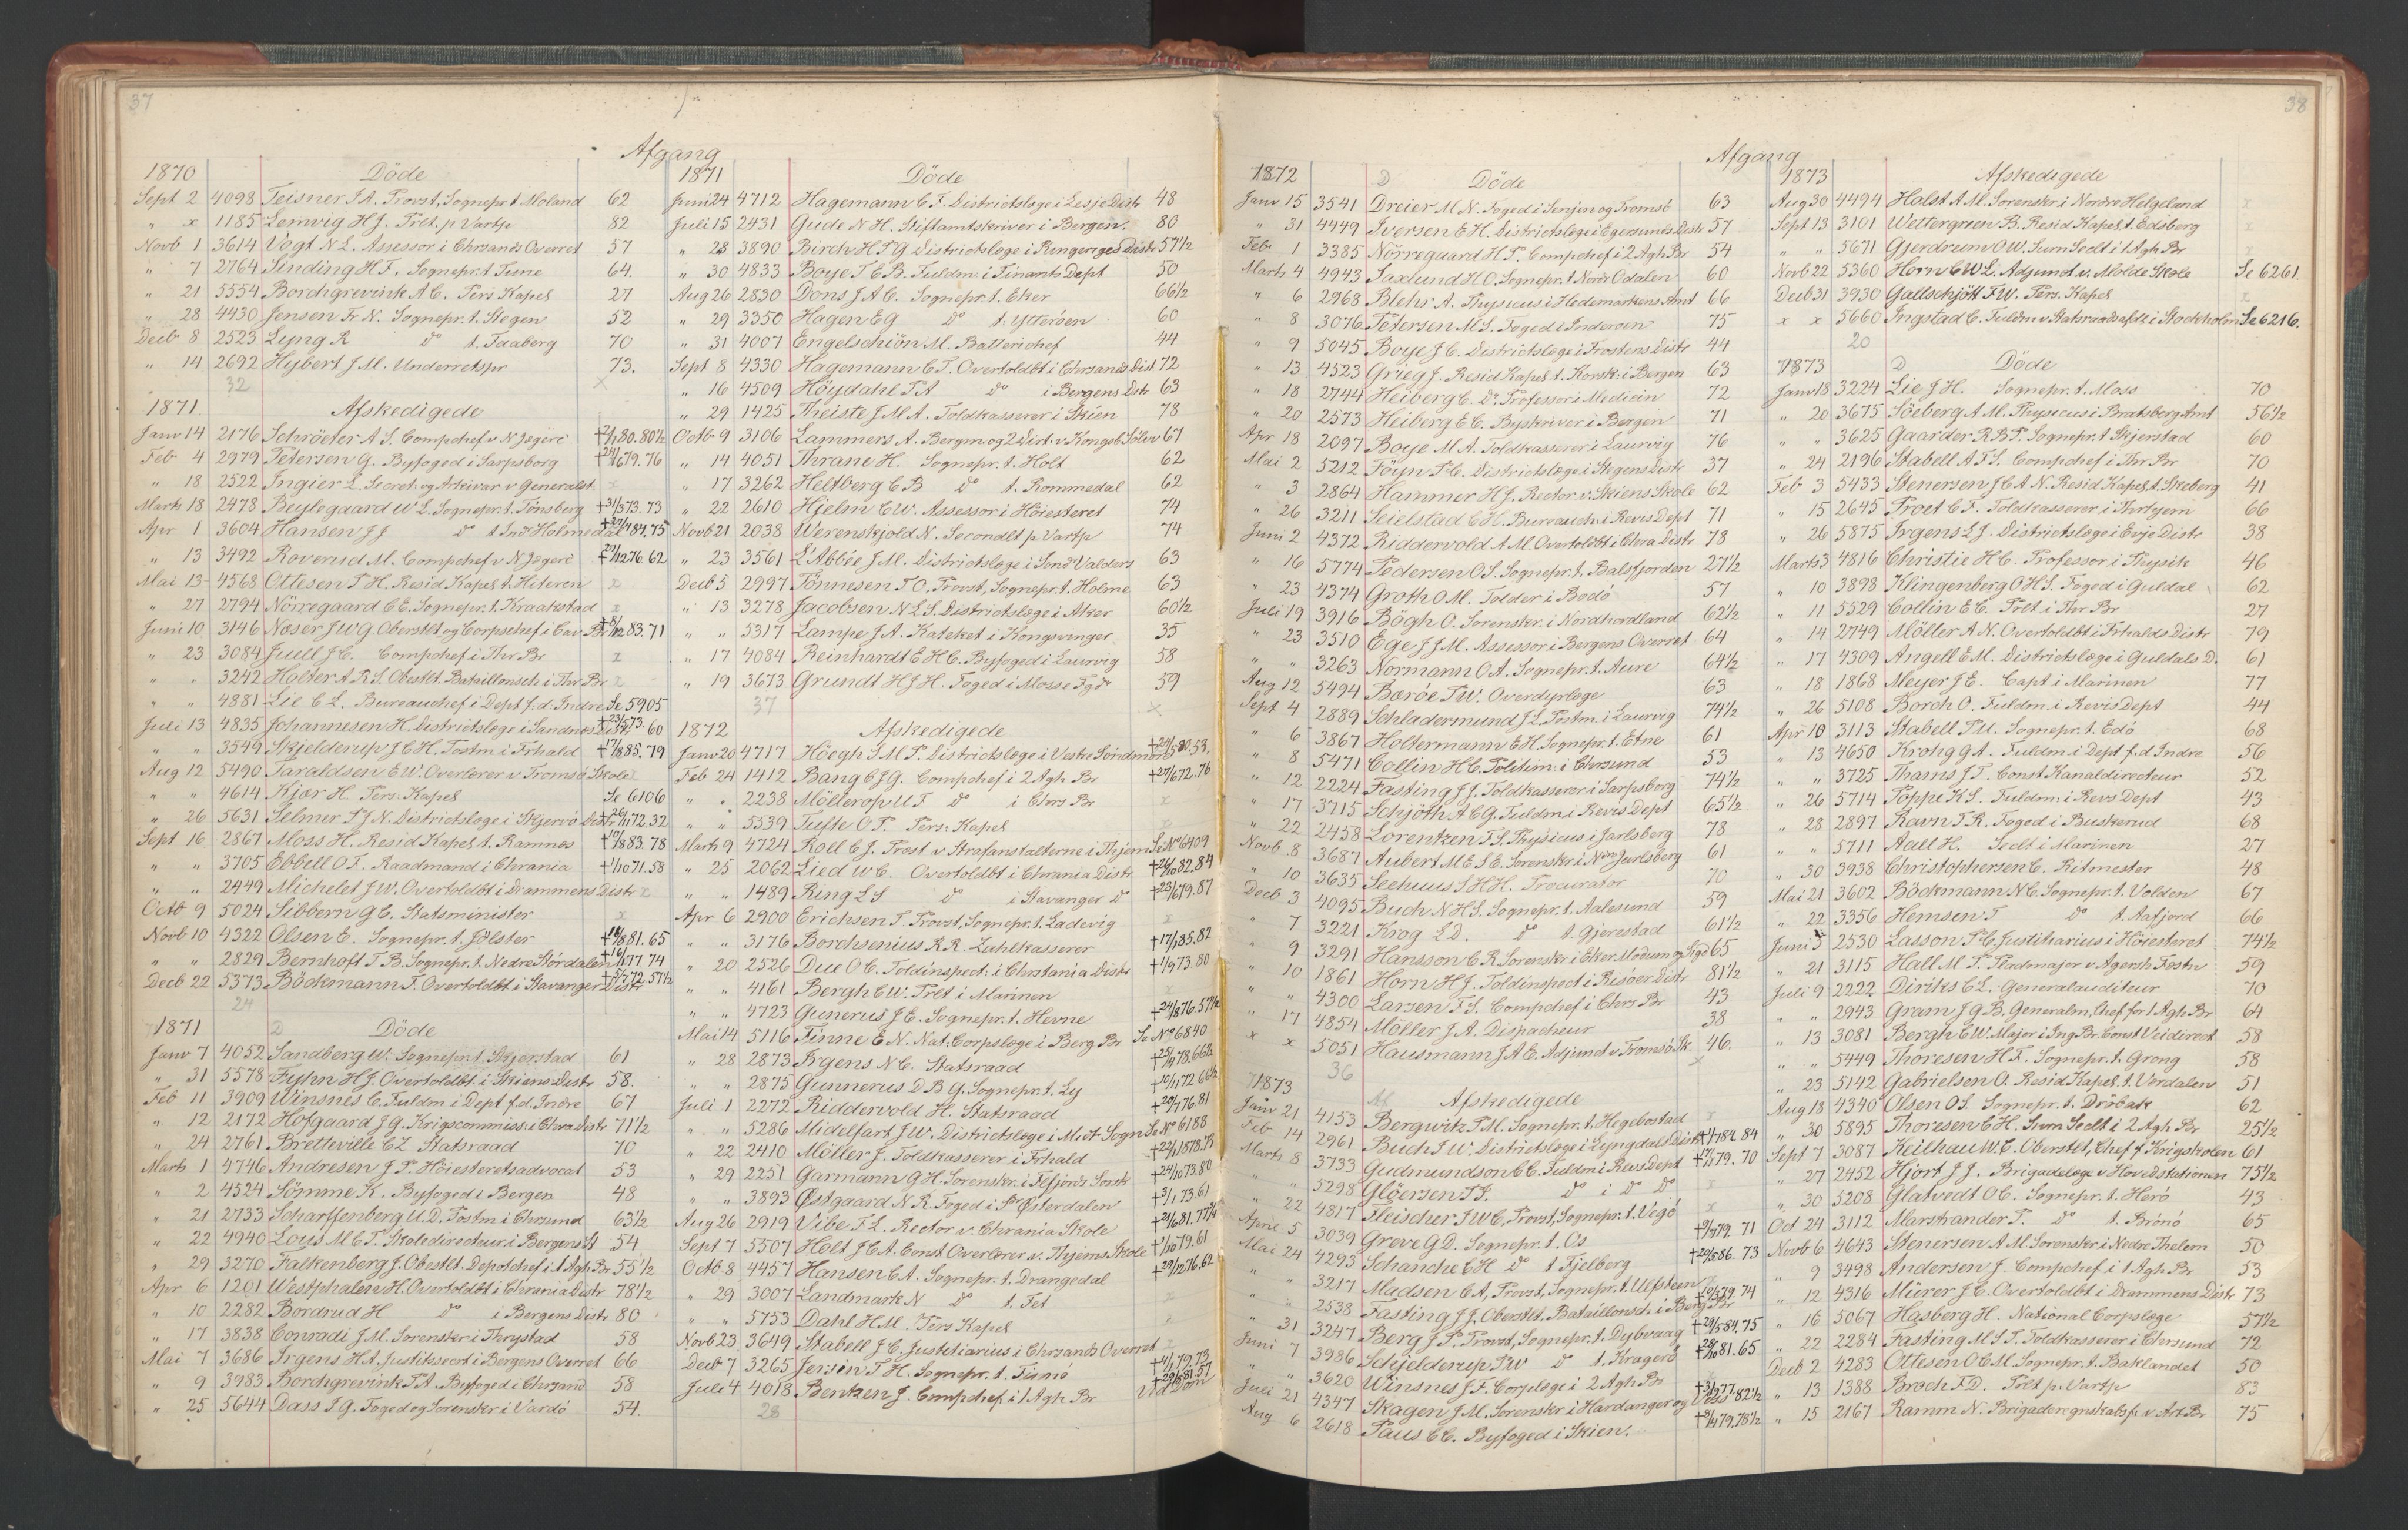 37
Afgang
1870 Döde
Sept 2 4098 Teisner J A. Provst, Sognepr. t. Moland 62
" x 1185 Lemvig H J. Prlt. p Vartp 82
Novb 1 3614 Vogt N L. Assessor i Chrsands Overret 57
" 7 2764 Sinding H F. Sognepr. t. Tune 64.
" 21 5554 Borchgrevink A C. Pers Kapel 27
" 28 4430 Jensen Fr N. Sognepr. t. Stegen 52
Decb 8 2523 Lyng R do t. Faaberg 70
" 14 2692 Hybert J M. Underretspr 73.
32 x
1871. Afskedigede
Janv 14 2176 Schröeter A S. Compchef v N Jegerc
Feb 4 2979 Petersen G. Byfoged i Sarpsborg
" 18 2522 Ingier L. Secret. og Arkivar v Generalst. x
Marts 18 2478 Beylegaard W L. Sognepr. t. Tönsberg +31/5 73. 73
Apr 1 3604 Hansen J J do t Indr Holmedal
" 13 3492 Roverud M. Compchef v N Jegerc
Mai 13 4568 Ottesen P H. Resid Kapel t. Hiteren x
" 27 2794 Nörregaard C E. Sognepr. t. Kraakstad x
Juni 10 3146 Næser J W G. Oberstlt og Corpschef i Cav Br
" 23 3084 Juell J C. Compchef i Thr Br x
" " 3242 Holter A R S. Obestlt. Bataillonsch i Thr Br x
" " 4881 Lie C L. Bureauchef i Dept f. d. Indre Se 5905
Juli 13 4835 Johannesen H. Districtslæge i Sandnæs Distr +23/5 73. 60
" " 3549 Skjelderup J C H. Postm i Frhald +17/8 85. 79
Aug 12 5490 Taraldsen E W. Overlærer v Tromsö Skole x
" " 4614 Kjær H. Pers. Kapel Se 6106
" 26 5631 Selmer P J N. Districtslæge i Skjervö Distr
Sept 16 2867 Moss H. Resid Kapel t. Ramnes +10/8 83. 78
" " 3705 Ebbell O F. Raadmand i Chrania +1/10 71. 58
" " 2449 Michelet J W. Overtoldbt i Drammens Distr x
Octb 9 5024 Sibbern G C. Statsminister x
Novb 10 4322 Olsen E. Sognepr. t. Jölster
" " 2829 Bernhoft T B. Sognepr. t. Nedre Stördalen
Decb 22 5373 Böckmann F. Overtoldbt i Stavanger Distr
24
1871 D Döde
Janv 7 4052 Sandberg W. Sognepr. t. Skjerstad 61
" 31 5578 Fyhn H J. Overtoldbt. i Skiens Distr 58.
Feb 11 3909 Winsnes C. Fuldm i Dept f. d. Indre 67
" 12 2172 Hofgaard J G. Krigscommiss i Chra Distr 71½
" 24 2761 Bretteville C Z Statsraad 70
Marts 1 4746 Andresen J P. Höiesteretsadvocat 53
" 2 4524 Sömme K. Byfoged i Bergen 48
" 21 2733 Scharffenberg U. D. Postm i Chrsund 63½
" 22 4940 Lous M C T. Skoledirecteur. i Bergens St 54
" 29 3270 Falkenberg J. Obestlt. Depotchef i 1 Agh Br 55½
Apr 6 1201 Westphalen H. Overtoldbt i Chrania Distr 78½
" 10 2282 Bordrud H do i Bergens Distr 80
" 17 3838 Conradi J M. Sorenskr i Thrystad 58
Mai 7 3686 Irgens H A. Justitssecrt i Bergens Overret 66
" 9 3983 Borchgrevink P A. Byfoged i Chrsand 58
" 25 5644 Dass P G. Foged og Sorenskr i Vardö 54.
1871 Döde
Juni 24 4712 Hagemann C F. Districtslæge i Lesje Distr 48
Juli 15 2431 Gude N H. Stiftamtskriver i Bergen. 80
" 28 3890 Birch H P G Districtslæge i Ringeriges Distr 57½
" 30 4833 Boye T E B. Fuldm. i Finants Dept 50
Aug 26 2830 Dons J A C. Sognepr. t. Eker 66½
" 29 3350 Hagen E G do t. Ytteröen 60
" 31 4007 Engelschiön M. Batterichef 44
Sept 8 4330 Hagemann C T. Overtoldbt i Chrsands Dist 72
" 16 4509 Höydahl P A do i Bergens Distr 63
" 29 1425 Theiste J M A. Toldkasserer i Skien 78
Octb 9 3106 Lammers A. Bergm og 2 Dirt. v Kongsb Sölvv 67
" 14 4051 Thrane H. Sognepr. t. Holt 62
" 17 3262 Heltberg C B do t. Rommedal 62
" 22 2610 Hjelm C W. Assessor i Höiesteret 74
Novb 21 2038 Werenskjold N. Secondlt p Vartp 74
" 23 3561 L'Abbée J M. Districtslæge i Sondr Valders 63
Decb 5 2997 Tönnesen T O. Provst, Sognepr. t. Holme 63
" 13 3278 Jacobsen N L S. Districtslæge i Aker 60½
" " 5317 Lampe J A. Kateket i Kongsvinger 35
" 17 4084 Reinhardt E H C. Byfoged i Laurvig 58
" 19 3673 Grundt H J H. Foged i Mosse Fgd 59
37 x
1872 Afskedigede
Janv 20 4717 Höegh S M P. Districtslæge i Vestre Söndmör
Feb 24 1412 Bang C J G. Compchef i 2 Agh Br
" " 2238 Mölterop U F do i Chrs Br x
" " 5539 Tufte O P. Pers. Kapel x
Marts 9 4724 Roll C J. Præst v Strafanstalterne i Thjem Se No 6409
" 25 2062 Lied W C. Overtoldbt i Chrania Distr
" " 1489 Ring L S do i Stavanger do
Apr 6 2900 Erichsen P. Provst, Sognepr. t. Ladvig x
" " 3176 Borchsenius R R. Zahlkasserer
" 20 2526 Due O C. Toldinspect. i Chrstania Distr
" " 4161 Bergh E W. Prlt i Marinen x
" " 4723 Gunerus J E. Sognepr. t. Hevne
Mai 14 5116 Finne E N. Nat. Corpslæge i Berg Br Se No 6840
" 28 2873 Irgens N C. Statsraad
" " 2875 Gunnerus D B G. Sognepr. t. Ly
Juli 1 2272 Riddervold H. Statsraad
" " 5286 Midelfart J W. Districtslæge i Mdt Sogn Se No 6188
" 22 2410 Möller J. Toldkasserer i Frhald
" 29 2251 Garmann G H. Sorenskr. i Ryfjords Sorskr
" " 3893 Østgaard N R. Foged i Sr Østerdalen
Aug 26 2919 Vibe F L. Rector v. Chrania Skole
Sept 7 5507 Holt J C A. Const Overlærer v. Thjems Skole
Octb 8 4457 Hansen C A. Sognepr. t. Drangedal
" 29 3007 Landmark N do t. Fet x
" " 5753 Dahl H M. Pers Kapel x
Novb 23 3649 Stabell J C. Justitiarius i Chrsands Overret x
Decb 7 3265 Jersin P H. Sognepr. t. Finnö
Juli 4 4018 Bentzen J. Compchef i 1 Agh Br Ved Dom
28
38
Afgang
1872 D Döde
Janv 15 3541 Dreier M N. Foged i Senjen og Tromsö 63
" 31 4449 Iversen E H. Districtslæge i Egersunds Distr 57
Feb 1 3385 Nörregaard H P. Compchef i 2 Agh Br 54
Marts 4 4943 Saxlund H O. Sognepr. t Nordr Odalen 60
" 6 2968 Blehr A. Physicus i Hedemarkens Amt 66
" 8 3076 Petersen M S. Foged i Inderöen 75
" 9 5045 Boye J C. Districtslæge i Frostens Distr 44
" 13 4523 Grieg J. Resid Kapel t. Korsk. i Bergen 63
" 18 2744 Heiberg C. Dr. Professor i Medicin 72
" 20 2573 Heiberg E C. Byskriver i Bergen 71
Apr 18 2097 Boye M A. Toldkasserer i Laurvig 76
Mai 2 5212 Föyn P C. Districtslæge i Stegens Distr 37
" 3 2864 Hammer H J. Rector v. Skiens Skole 62
" 26 3211 Seielstad E H. Bureauch. i Revis Dept 71
Juni 2 4372 Riddervold A M. Overtoldbt i Chra Distr 78
" 16 5774 Pedersen O S. Sognepr. t. Balsfjorden 27½
" 23 4374 Groth O M. Tolder i Bodö 57
Juli 19 3916 Bögh O. Sorenskr. i Nordhordland 62½
" 23 3510 Ege J J M. Assessor i Bergens Overret 64
" " 3263 Normann O A. Sognepr. t. Aure 64½
Aug 12 5494 Boröe P W. Overdyrlæge 63
Sept 4 2889 Schladermund J L. Postm. i Laurvig 74½
" 6 3867 Holtermann E H. Sognepr. t. Etne 61
" 8 5471 Collin H C. Politim. i Chrsund 53
" 12 2224 Fasting J J. Toldkasserer i Sarpsborg 74½
" 17 3715 Schjöth A C G. Fuldm. i Revis Dept 65½
" 22 2458 Lorentzen F S. Physicus i Jarlsberg 78
Novb 8 3687 Aubert M E S E. Sorenskr i Ndre Jarlsberg 61
" 10 3635 Seehuus S H H. Procurator 70
Decb 3 4095 Buch N H S. Sognepr. t. Aalesund 59
" 7 3221 Krog L D. do t. Gjerestad 61½
" 9 3291 Hansson C R. Sorenskr i Eker Modum og Sigd 65
" 10 1861 Horn H J. Toldinspect i Risöer Distr 81½
" " 4300 Larsen P S. Compchef i Chrs Br 43
" 17 4854 Möller J A. Dispacheur 38
x x 5051 Hausmann J A C. Adjunct v Tromsö Sk. 46.
36 x
1873 Af Afskedigede
Janv 21 4153 Bergwitz P M. Sognepr. t. Hegebostad x
Feb 14 2961 Buch J W. Districtslæge i Lyngdals Distr
Marts 8 3733 Gudmundson C C. Fuldm i Revs Dept
" " 5298 Glöersen P P. do i do do x
" 22 4817 Fleischer J W C, Provst, Sognepr. t. Vegö x
April 5 3039 Greve G D. Sognepr. t. Os
Mai 24 4293 Schanche E H do t Fjelberg
" " 3217 Madsen C A, Provst, Sognepr. t. Ulfsteen x
" " 2538 Fasting J J, Oberstlt, Bataillonsch i Berg Br
" 31 3247 Berg J P. Provst, Sognepr. t. Dybvaag
Juni 7 3986 Schjelderup P W do t. Kragerö
" " 3620 Winsnes J F. Corpslæge i 2 Agh Br
Juli 21 4347 Skagen J M. Sorenskr i Hardanger og Voss
Aug 6 2618 Paus C C. Byfoged i Skien.
1873 Afskedigede
Aug 30 4494 Holst A M. Sorenskr i Nordre Helgeland x
Sept 13 3101 Wettergreen B. Resid Kapel t. Edsberg x
" " 5671 Gjerdrum O W. Surn Seclt i 1 Agh Br x
Novb 22 5360 Horn C W L. Adjunct v. Molde Skole Se 6261.
Decb 31 3930 Gallschjött F W. Pers. Kapel x
x x 5660 Ingstad C. Fuldm v Statsraadsafdl i Stockholm Se 6216.
20
1873 D Döde
Janv 18 3224 Lie J H. Sognepr. t. Moss 70
" 20 3675 Söeberg A M. Physicus i Bratsberg Amt 56½
" " 3625 Gaarder R B P. Sognepr. t Skjerstad 60
" 24 2196 Stabell A F S. Compchef i Thr Br 70
Feb 3 5433 Stenersen J C A N. Resid Kapel t. Skeberg 41
" 15 2645 Proet C F. Toldkasserer i Thrhjem 66
" 26 5875 Irgens L J. Districtslæge i Evje Distr 38
Marts 3 4816 Christie H C. Professor i Physik 46
" 10 3898 Klingenberg O H S. Foged i Guldal 62
" 11 5529 Collin E C. Prlt. i Thr Br 27
" 14 2749 Möller A N. Overtoldbt i Frhalds Distr 79
" 17 4309 Angell E M. Districtslæge i Guldals D. 61
" 18 1868 Meyer J E. Capt i Marinen 77
" 26 5108 Borch O. Fuldm. i Revis Dept 44
Apr 10 3113 Stabell P U. Sognepr. t. Edö 68
" 13 4650 Krohg G A. Fuldm. i Dept f. d Indre 56
" " 3725 Thams J T. Const Kanaldirecteur 52
" 26 5714 Poppe K S. Fuldm. i Revs Dept 43
" 28 2897 Ravn P R. Foged i Buskerud 68
" " 5711 Aall H. Seclt i Marinen 27
" 30 3938 Christophersen C. Ritmester 48
Mai 21 3602 Böckmann N C. Sognepr. t. Volden 67
" 22 3356 Hemsen T do t. Aafjord 66
Juni 5 2530 Lasson P C. Justitiarius i Höiesteret 74½
" 21 3115 Hall M F. Pladsmajor v Agersh Fæstn 59
Juli 9 2222 Diriks C L. Generalauditeur 70
" " 2943 Gram J G B, Generalm, Chef for 1 Agh Br 64
" 13 3081 Bergh E W. Major i Ing Br. Const Veidirect 58
" " 5449 Thoresen H F. Sognepr. t. Grong 58
" 23 5142 Gabrielsen O. Resid Kapel. t. Verdalen 51
Aug 18 4340 Olsen O S. Sognepr. t. Dröbak 62
" 30 5895 Thoresen E H. Surn Seclt i 2 Agh Br 25½
Sept 7 3087 Keilhau W C. Oberstlt, Chef f Krigsskolen 61
" 27 2452 Hjort J J. Brigadelæge v Hovedstationen 75½
" 30 5208 Glatvedt O C. Sognepr. t. Herö 43
Oct 24 3112 Marstrander P. do t. Brönö 65
Novb 6 4643 Stenersen A M. Sorenskr i Nedre Thelem 50
" 9 3498 Andersen J. Compchef i 1 Agh Br 53
" 12 4316 Mürer J C. Overtoldbt i Drammens Distr 73
" 16 5067 Hasberg H. National Corpslæge 57½
" 22 2284 Fasting M S P. Toldkasserer i Chrsund 72
Decb 2 4283 Ottesen O C M. Sognepr. t. Baklandet 50
" 13 1388 Broch F D. Prlt p. Vartp 83
" 15 2167 Ramm N. Brigaderegnskabsf. v. Art Br 75